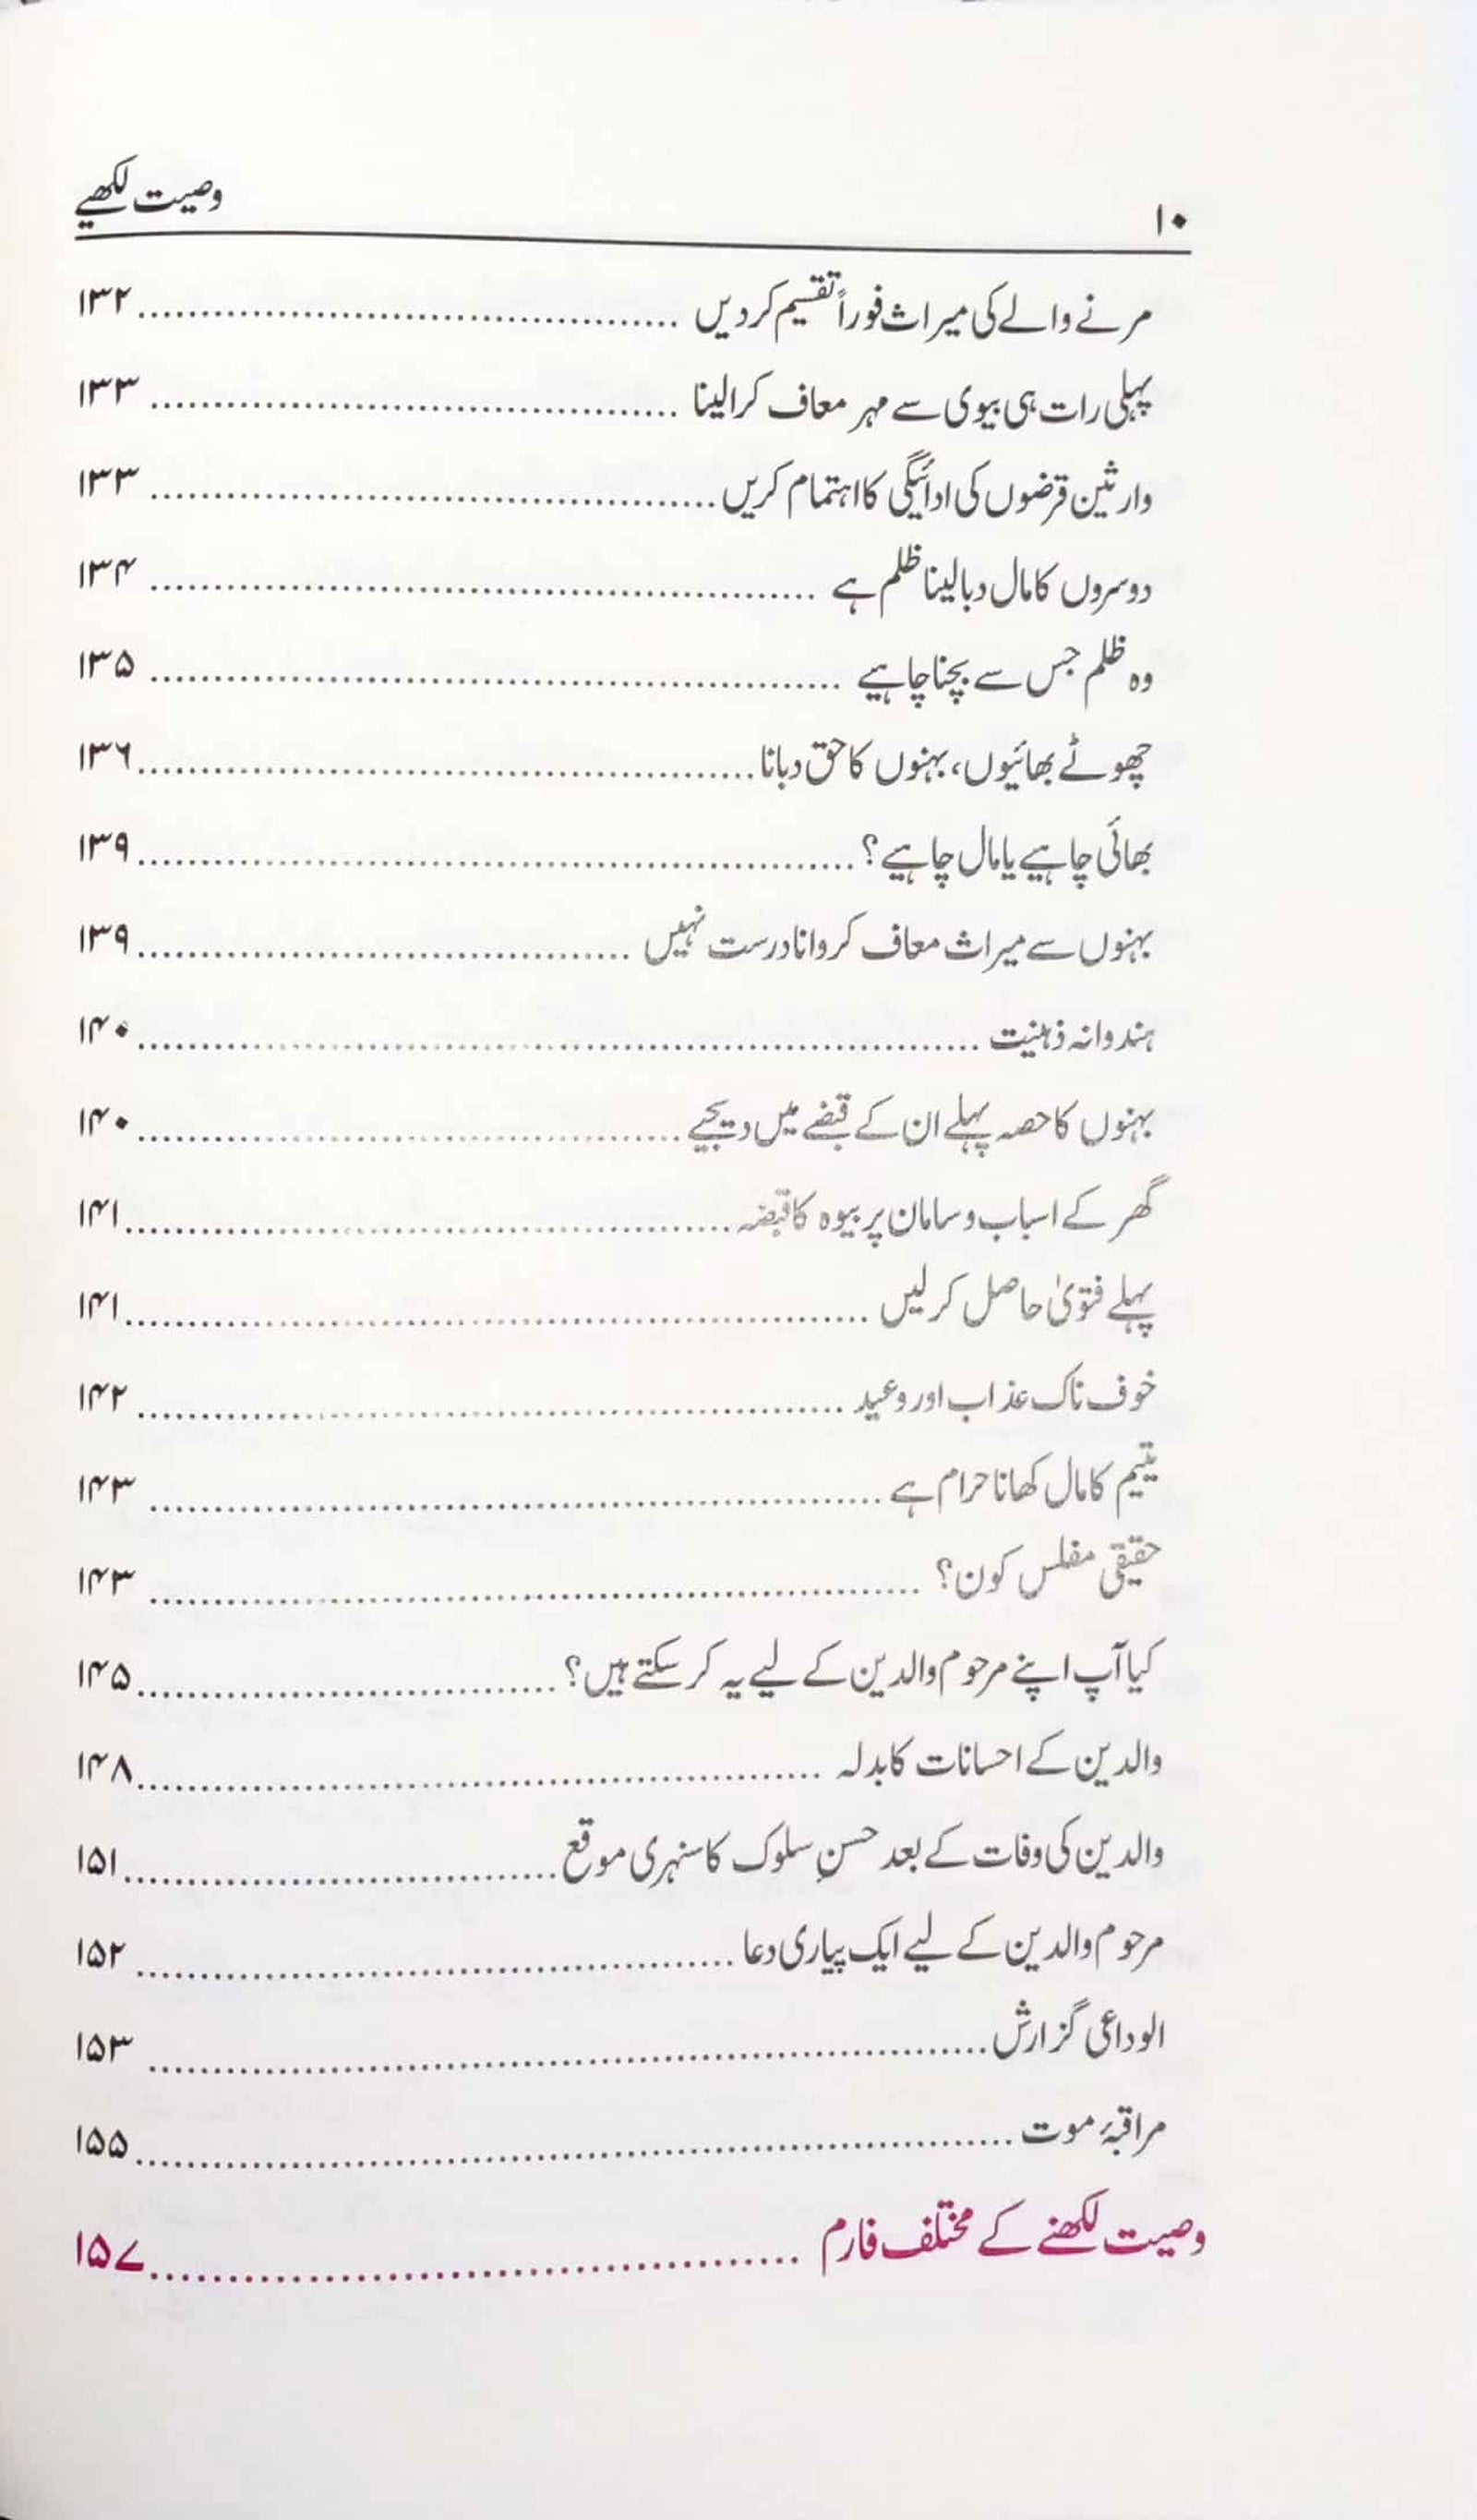 ۱۰ وصیت لکھیے
مرنے والے کی میراث فوراً تقسیم کردیں ۱۳۲
پہلی رات ہی بیوی سے مہر معاف کرالینا ۱۳۳
وارثین قرضوں کی ادائیگی کا اہتمام کریں ۱۳۳
دوسروں کا مال دبا لینا ظلم ہے ۱۳۴
وہ ظلم جس سے بچنا چاہیے ۱۳۵
چھوٹے بھائیوں، بہنوں کا حق دبانا ۱۳۶
بھائی چاہیے یا مال چاہیے؟ ۱۳۹
بہنوں سے میراث معاف کروانا درست نہیں ۱۳۹
ہندوانہ ذہنیت ۱۴۰
بہنوں کا حصہ پہلے ان کے قبضے میں دیجیے ۱۴۰
گھر کے اسباب و سامان پر بیوہ کا قبضہ ۱۴۱
پہلے فتویٰ حاصل کرلیں ۱۴۱
خوف ناک عذاب اور وعید ۱۴۲
یتیم کا مال کھانا حرام ہے ۱۴۳
حقیقی مفلس کون؟ ۱۴۳
کیا آپ اپنے مرحوم والدین کے لیے یہ کر سکتے ہیں؟ ۱۴۵
والدین کے احسانات کا بدلہ ۱۴۸
والدین کی وفات کے بعد حسنِ سلوک کا سنہری موقع ۱۵۱
مرحوم والدین کے لیے ایک پیاری دعا ۱۵۲
الوداعی گزارش ۱۵۳
مراقبۂ موت ۱۵۵
وصیت لکھنے کے مختلف فارم ۱۵۷